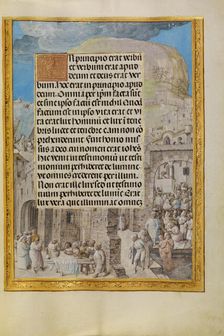 In principio erat verbū
et verbum erat apud
deum et deus erat ver
bum. Hoc erat in principio apud
deum. Omnia per ipm facta sūt
et sine ipso factum est nichil. Quod
factum est in ipso vita erat et vi
ta erat lux hominū et lux in tene
bris lucet et tenebre eam non cō
prehenderunt. Fuit homo mis
sus a deo cui nomen erat iohānes
hic venit in testimoniū ut testi
monium perhiberet de lumine
ut omnes crederent per illum.
Non erat ille lux sed ut testimo
nium perhiberet de lumine. Erat
lux vera que illuminat omnem